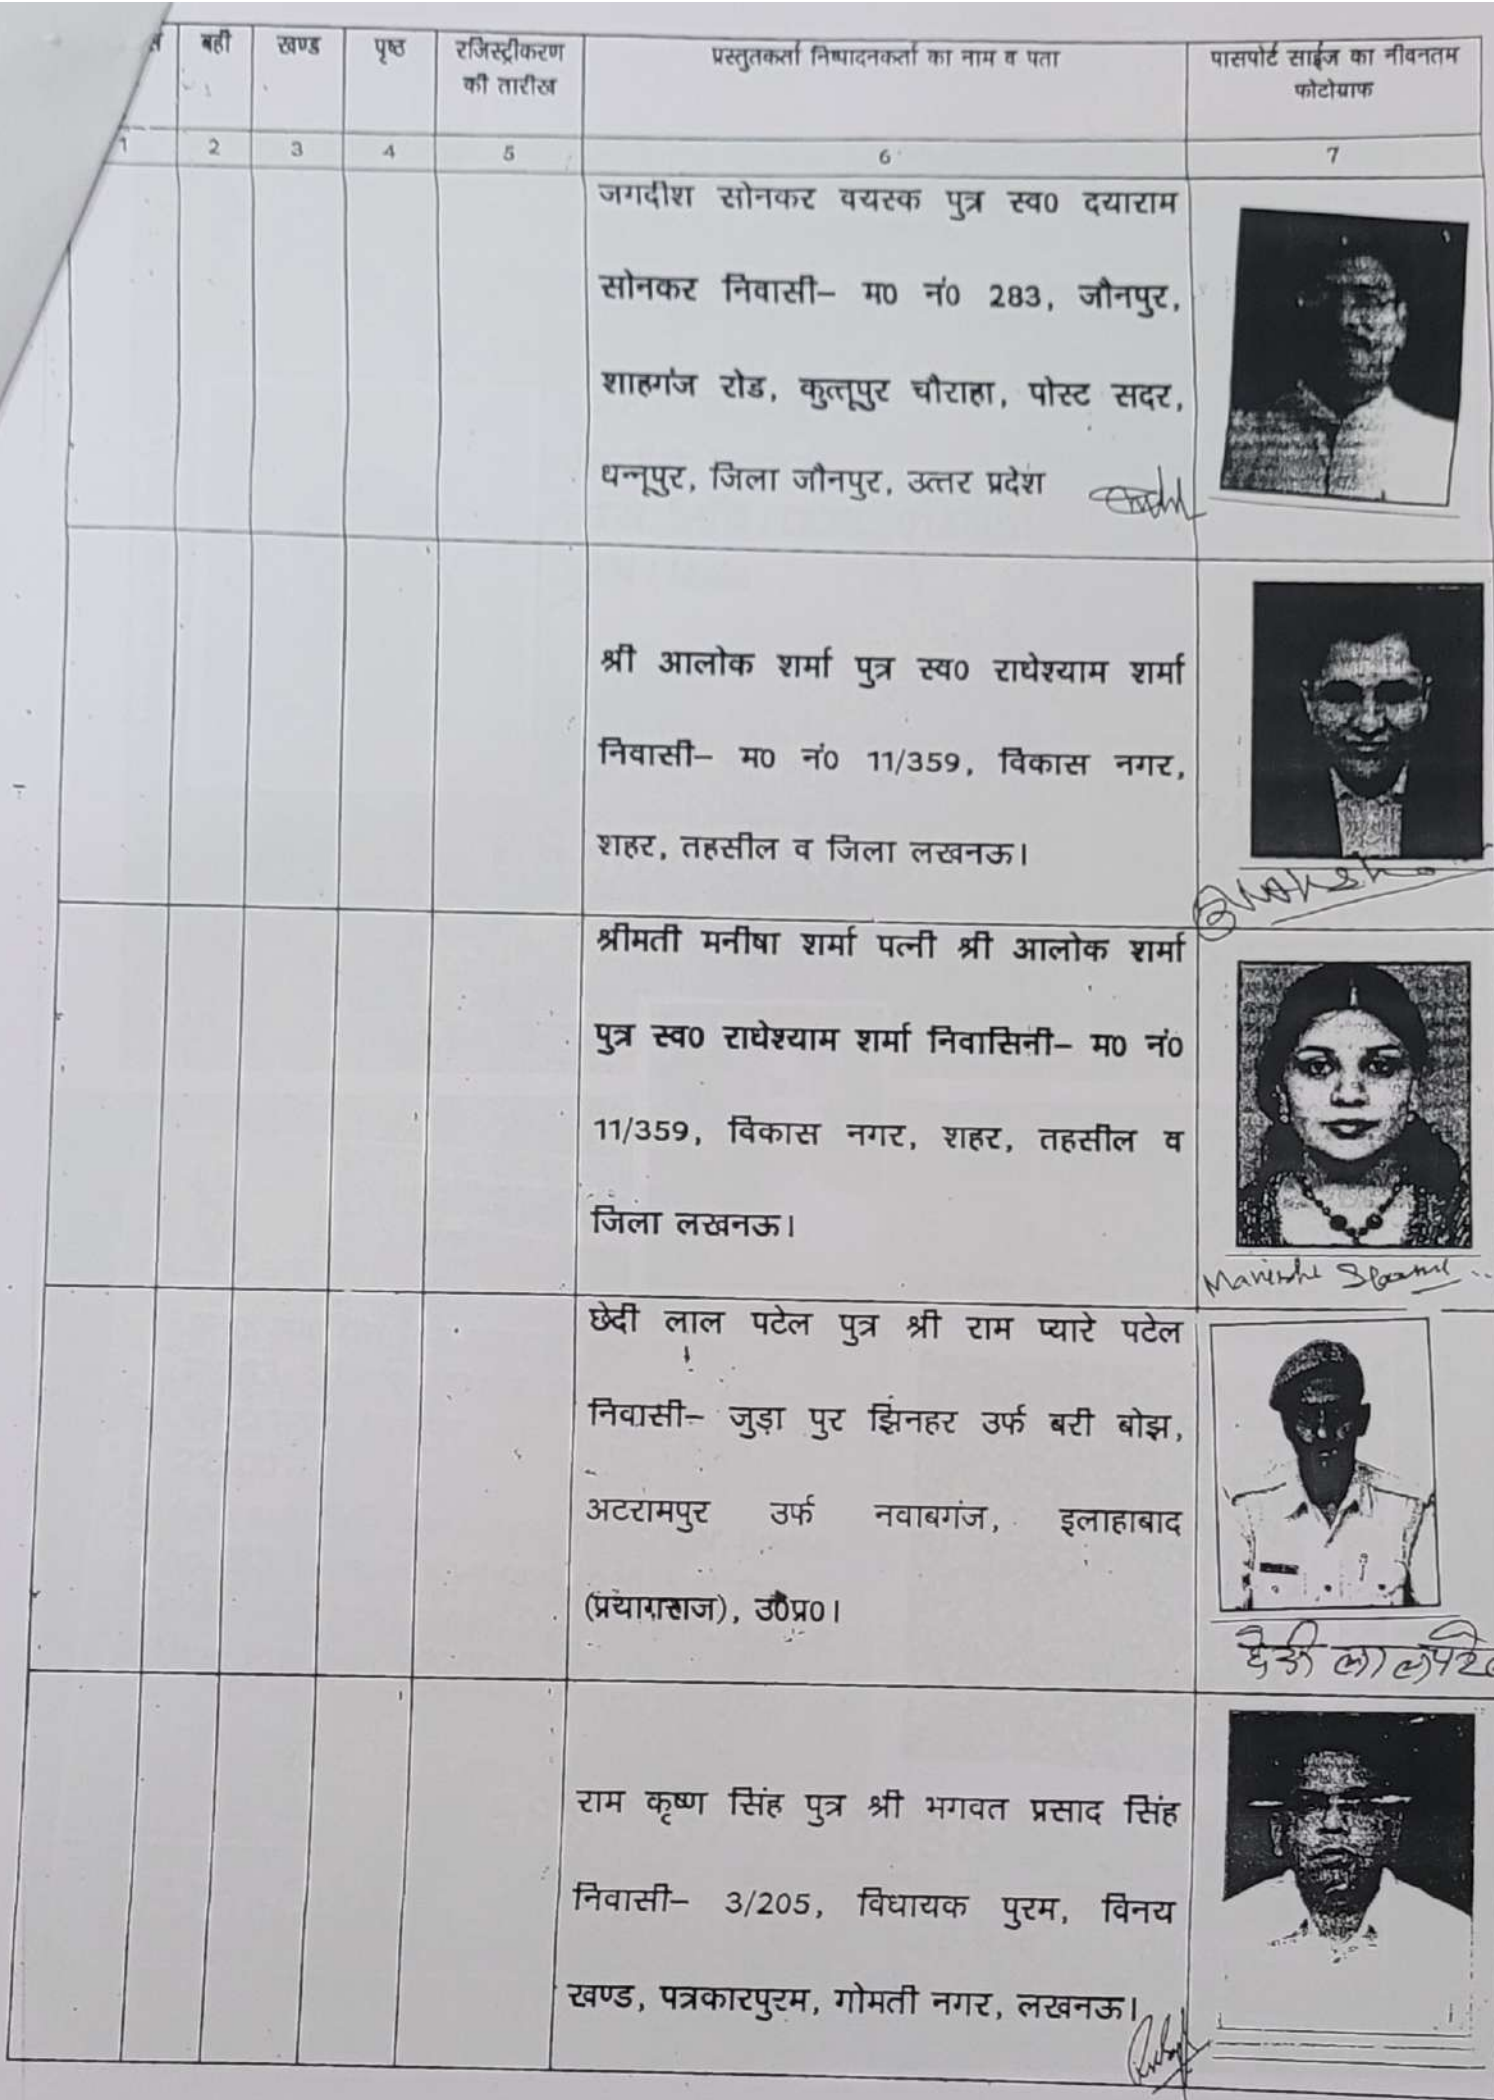 बही खण्ड पृष्ठ रजिस्ट्रीकरण की तारीख प्रस्तुतकर्ता निष्पादनकर्ता का नाम व पता पासपोर्ट साईज का नीवनतम फोटोग्राफ
1 2 3 4 5 6 7
जगदीश सोनकर वयस्क पुत्र स्व0 दयाराम
सोनकर निवासी– म0 नं0 283, जौनपुर,
शाहगंज रोड, कुत्तूपुर चौराहा, पोस्ट सदर,
धन्नूपुर, जिला जौनपुर, उत्तर प्रदेश
श्री आलोक शर्मा पुत्र स्व0 राधेश्याम शर्मा
निवासी– म0 नं0 11/359, विकास नगर,
शहर, तहसील व जिला लखनऊ।
श्रीमती मनीषा शर्मा पत्नी श्री आलोक शर्मा
पुत्र स्व0 राधेश्याम शर्मा निवासिनी– म0 नं0
11/359, विकास नगर, शहर, तहसील व
जिला लखनऊ।
छेदी लाल पटेल पुत्र श्री राम प्यारे पटेल
निवासी– जुड़ा पुर झिनहर उर्फ बरी बोझ,
अटरामपुर उर्फ नवाबगंज, इलाहाबाद
(प्रयागराज), उ0प्र0।
छेदी लाल पटेल
राम कृष्ण सिंह पुत्र श्री भगवत प्रसाद सिंह
निवासी– 3/205, विधायक पुरम, विनय
खण्ड, पत्रकारपुरम, गोमती नगर, लखनऊ।